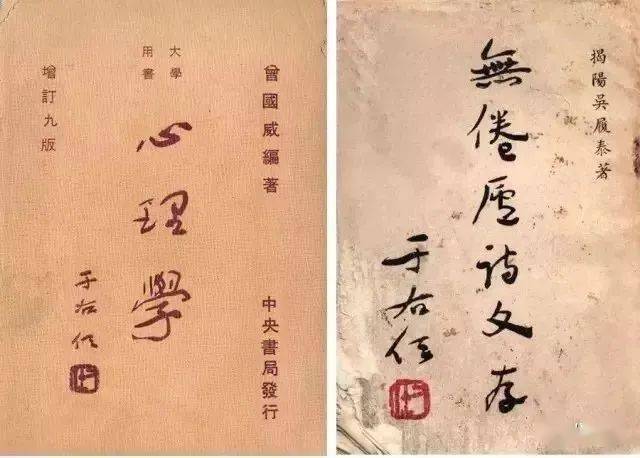 大學用書
曾國威編著
心理學
增訂九版
于右任
中央書局發行
揭陽吳履泰著
無倦廬詩文存
于右任